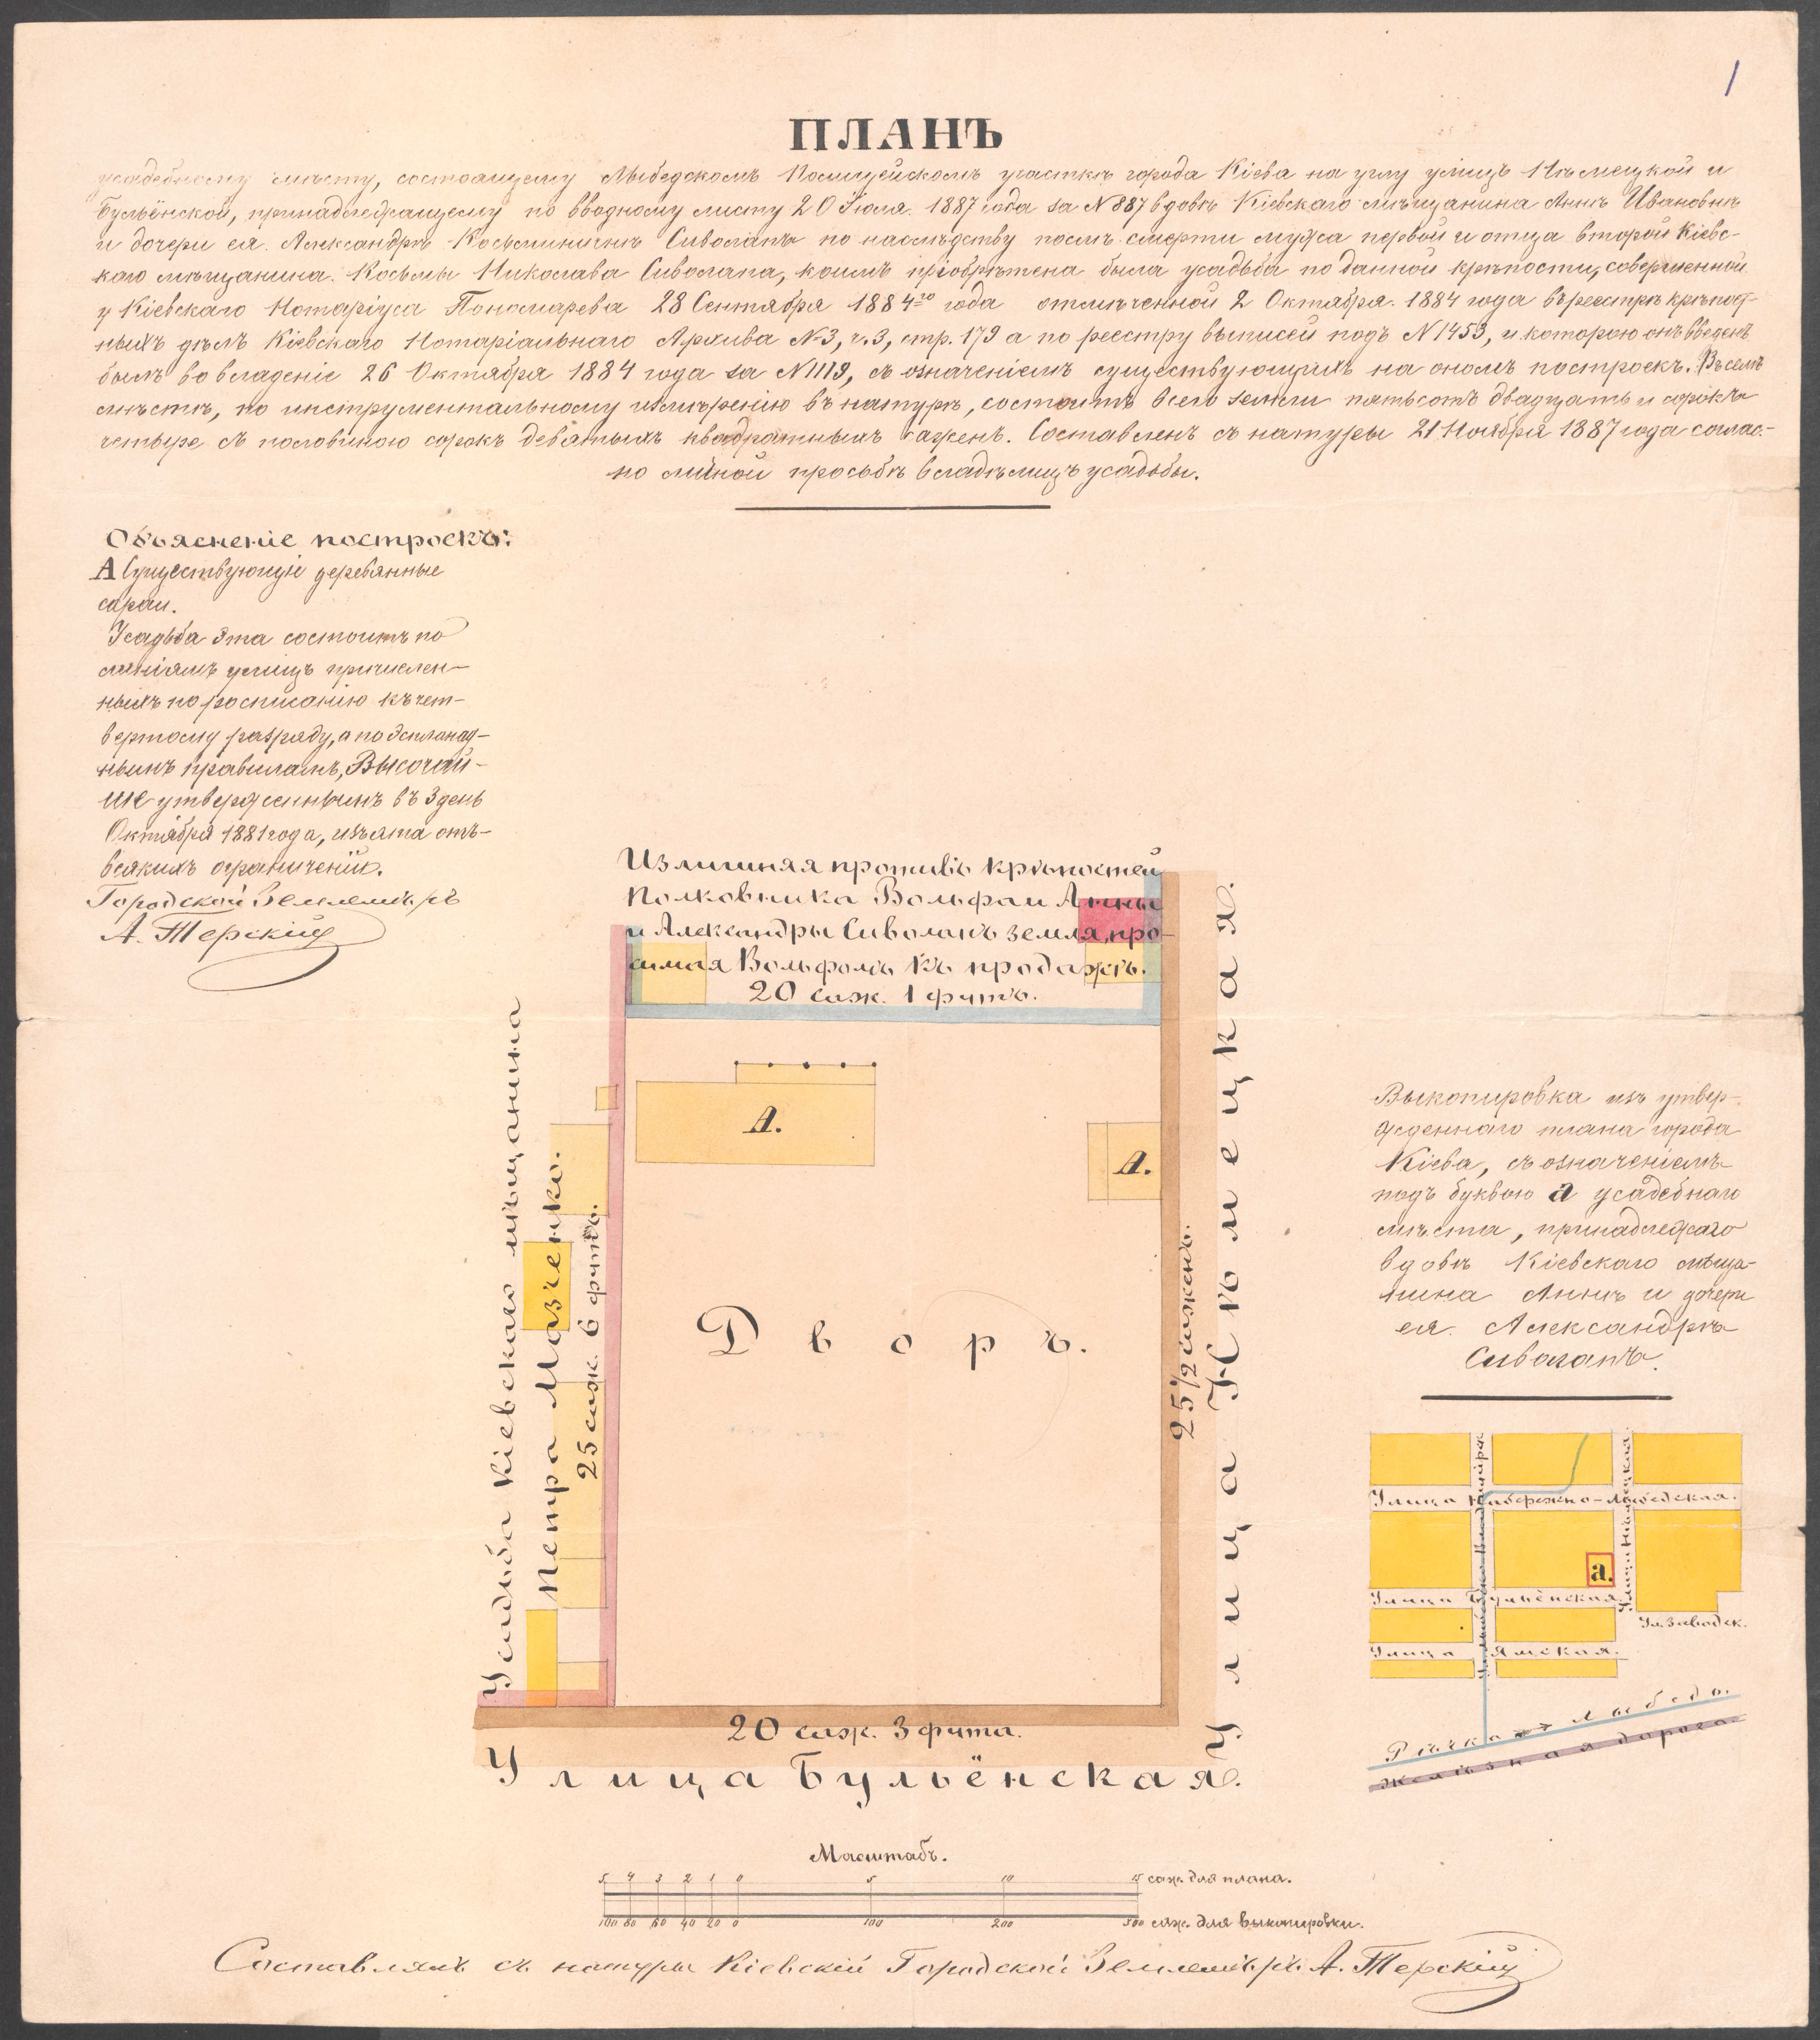 1
ПЛАНЪ
усадебному мѣсту, состоящему Лыбедскомъ Полицейскомъ участкѣ города Кіева на углу улицъ Нѣмецкой и
Бульёнской, принадлежащему по вводному листу 20 Іюля 1887 года за №887 вдовѣ Кіевскаго мѣщанина Аннѣ Ивановнѣ
и дочери ея Александрѣ Косьминичнѣ Сиволапъ по наслѣдству послѣ смерти мужа первой и отца второй Кіевс-
каго мѣщанина Косьмы Николаева Сиволапа, коимъ пріобрѣтена была усадьба по данной крѣпости, совершенной
у Кіевскаго Нотаріуса Пономарева 28 Сентября 1884го года отмѣченной 2 Октября 1884 года въ реестрѣ крѣпост-
ныхъ дѣлъ Кіевскаго Нотаріальнаго Архива №3, ч.3, стр. 179 а по реестру выписей подъ №1453, и которою онъ введенъ
былъ во владеніе 26 Октября 1884 года за №1119, съ означеніемъ существующихъ на ономъ построекъ. Въ семъ
мѣстѣ, по инструментальному измѣренію въ натурѣ, состоитъ всего земли пятьсотъ двадцать и сорокъ
четыре съ половиною сорокъ девятыхъ квадратныхъ сажень. Составленъ съ натуры 21 Ноября 1887 года соглас-
но личной просьбѣ владѣлицъ усадьбы.
Объясненіе построекъ:
А Существующіе деревянные
сараи.
Усадьба эта состоитъ по
линіямъ улицъ причислен-
ныхъ по росписанію къ чет-
вертому разряду, а по эспланад-
нымъ правиламъ, Высочай-
ше утвержденнымъ въ 3 день
Октября 1881 года, изъята отъ-
всякихъ ограниченій.
Городской Землемѣръ
А. Терскій
Излишняя противъ крѣпостей
Полковника Вольфа и Анны
и Александры Сиволапъ земля, про-
симая Вольфомъ къ продажѣ.
20 саж. 1 футъ.
А.
А.
Дворъ.
Усадьба Кіевскаго мѣщанина
Петра Мазченко.
25 саж. 6 футъ.
25 1/2 сажень.
Улица Нѣмецкая.
20 саж. 3 фута.
Улица Бульёнская.
Выкопировка изъ утвер-
жденнаго плана города
Кіева, съ означеніемъ
подъ буквою а усадебнаго
мѣста, принадлежаго
вдовѣ Кіевскаго мѣща-
нина Аннѣ и дочери
ея Александрѣ
Сиволапъ.
Улица Набережно-Лыбедская.
Улица Нѣмецкая.
а.
Улица Бульёнская.
Ул. Заводск.
Улица Ямская.
Рѣчка Лыбедь.
Желѣзная дорога.
Масштабъ.
5 4 3 2 1 0 5 10 15 саж. для плана.
100 80 60 40 20 0 100 200 300 саж. для выкопировки.
Составлялъ съ натуры Кіевскій Городской Землемѣръ А. Терскій